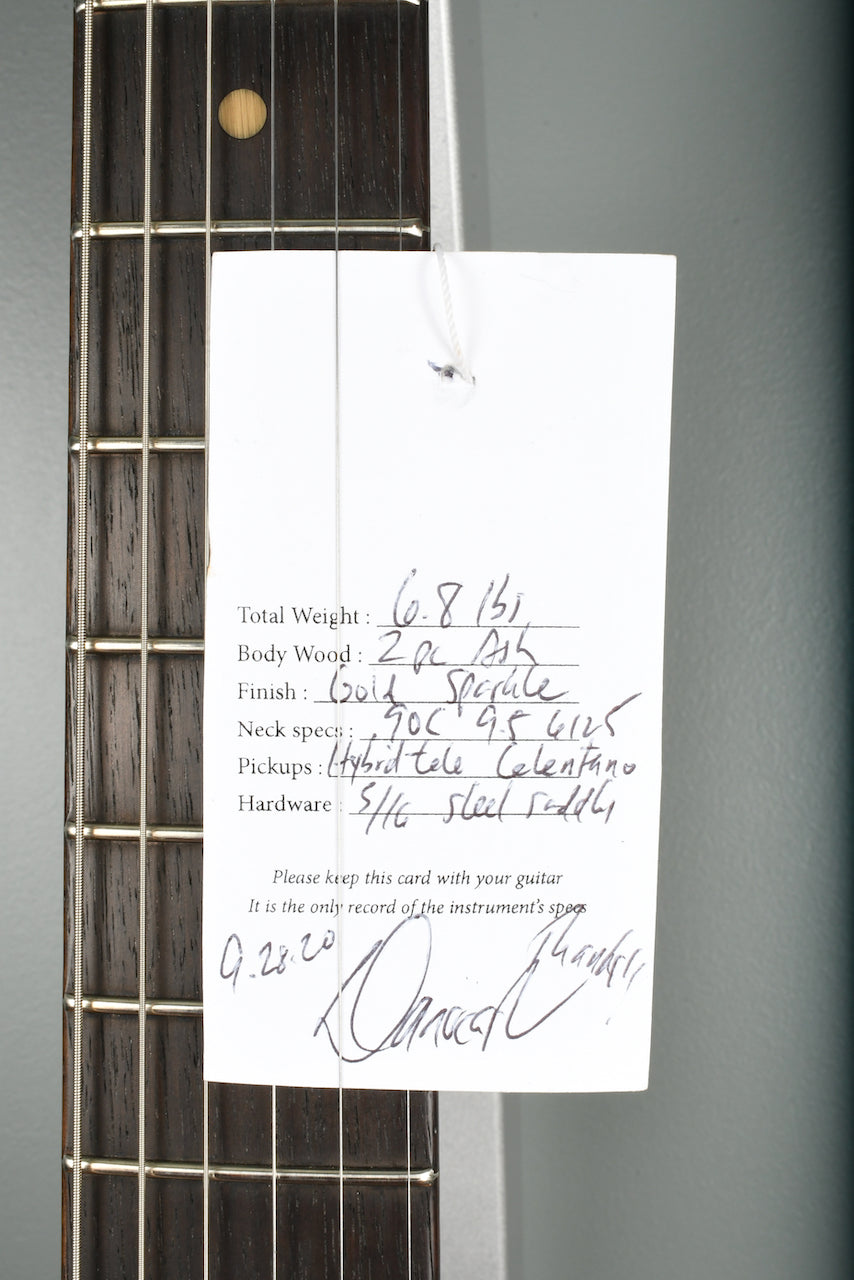 Total Weight : 6.8 lbs
Body Wood : 2 pc Ash
Finish : Gold Sparkle
Neck specs : .90C 9.5 6125
Pickups : Hybrid tele Celentano
Hardware : 5/16 steel saddles
Please keep this card with your guitar
It is the only record of the instrument's specs
9.28.20
Thanks!!